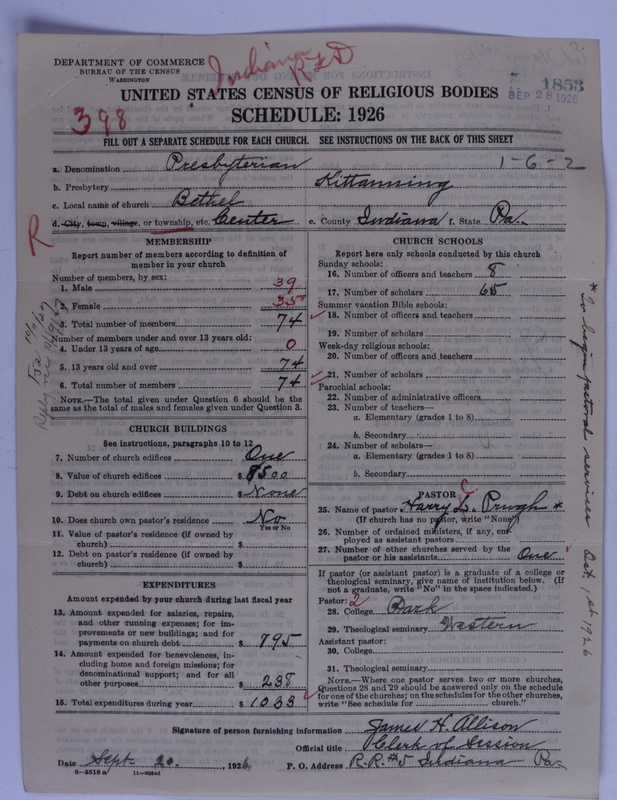 DEPARTMENT OF COMMERCE
BUREAU OF THE CENSUS
WASHINGTON
Indiana RFD
1853
SEP 28 1926
UNITED STATES CENSUS OF RELIGIOUS BODIES
SCHEDULE: 1926
398
FILL OUT A SEPARATE SCHEDULE FOR EACH CHURCH. SEE INSTRUCTIONS ON THE BACK OF THIS SHEET
a. Denomination Presbyterian 1-6-2
b. Presbytery Kittanning
c. Local name of church Bethel
d. City, town, village, or township, etc. Center e. County Indiana f. State Pa.
R
MEMBERSHIP
Report number of members according to definition of
member in your church
Number of members, by sex:
1. Male 39
2. Female 35
3. Total number of members 74
Number of members under and over 13 years old:
4. Under 13 years of age 0
5. 13 years old and over 74
6. Total number of members 74
NOTE.—The total given under Question 6 should be
same as the total of males and females given under Question 3.
CHURCH BUILDINGS
See instructions, paragraphs 10 to 12
7. Number of church edifices One
8. Value of church edifices $ 8500
9. Debt on church edifices $ None
10. Does church own pastor's residence No
Yes or No
11. Value of pastor's residence (if owned by
church) $
12. Debt on pastor's residence (if owned by
church) $
EXPENDITURES
Amount expended by your church during last fiscal year
13. Amount expended for salaries, repairs,
and other running expenses; for im-
provements or new buildings; and for
payments on church debt $ 795
14. Amount expended for benevolences, in-
cluding home and foreign missions; for
denominational support; and for all
other purposes $ 238
15. Total expenditures during year $ 1033
CHURCH SCHOOLS
Report here only schools conducted by this church
Sunday schools:
16. Number of officers and teachers 8
17. Number of scholars 65
Summer vacation Bible schools:
18. Number of officers and teachers
19. Number of scholars
Week-day religious schools:
20. Number of officers and teachers
21. Number of scholars
Parochial schools:
22. Number of administrative officers
23. Number of teachers—
a. Elementary (grades 1 to 8)
b. Secondary
24. Number of scholars—
a. Elementary (grades 1 to 8)
b. Secondary
PASTOR C
25. Name of pastor Harry L. Prugh *
(If church has no pastor, write "None")
26. Number of ordained ministers, if any, em-
ployed as assistant pastors
27. Number of other churches served by the
pastor or his assistants One
If pastor (or assistant pastor) is a graduate of a college or
theological seminary, give name of institution below. (If
not a graduate, write "No" in the space indicated.)
Pastor: 2
28. College Park
29. Theological seminary Western
Assistant pastor:
30. College
31. Theological seminary
NOTE.—Where one pastor serves two or more churches,
Questions 28 and 29 should be answered only on the schedule
for one of the churches; on the schedules for the other churches,
write "See schedule for church."
* To begin pastoral services Oct. 1st 1926
Signature of person furnishing information James H. Allison
Official title Clerk of Session
Date Sept 20, 1926 P. O. Address R.R. #5 Indiana Pa.
8-2518 a